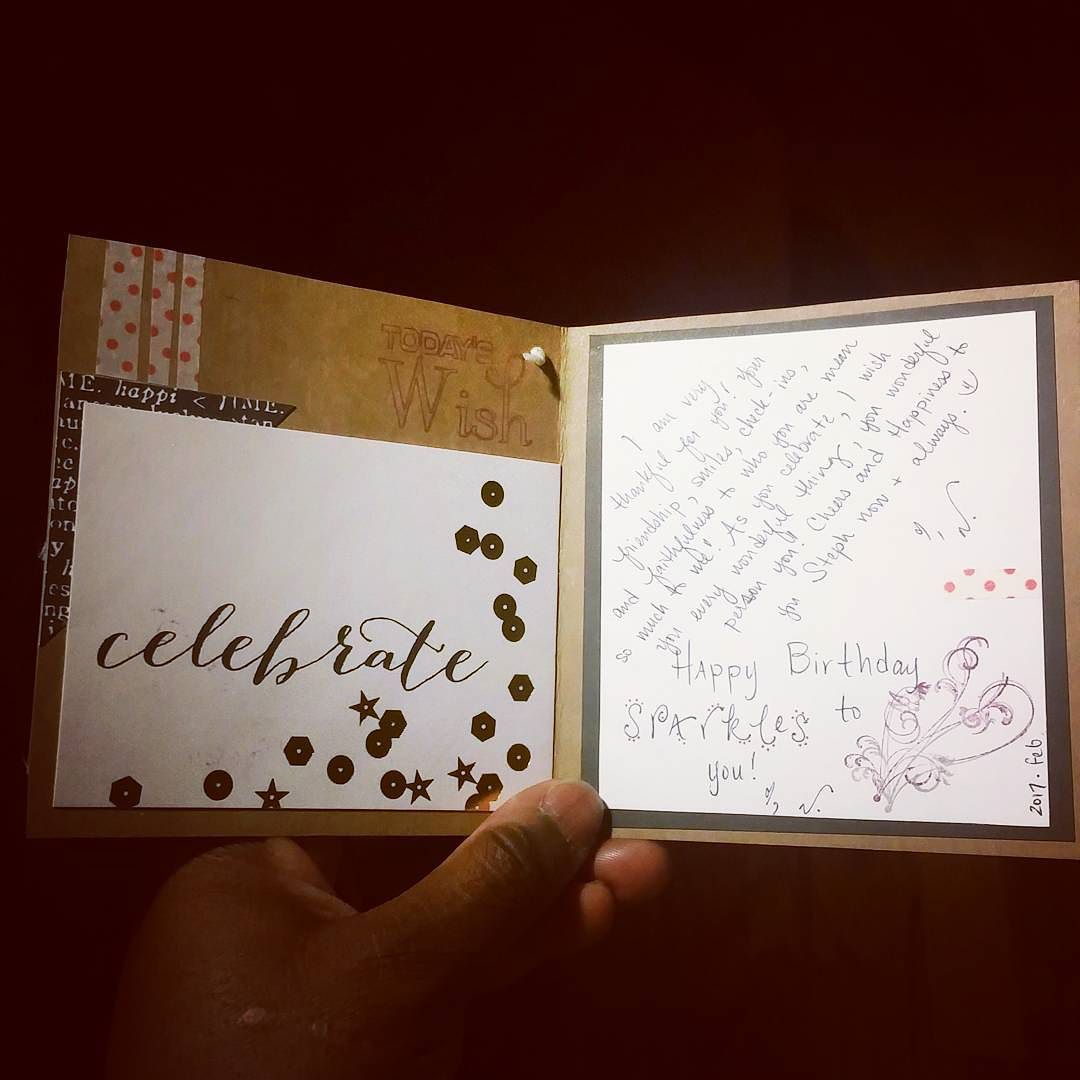 TODAY'S
Wish
ME. happi < TIME.
celebrate
I am very
thankful for you! Your
friendship, smiles, check-ins,
and faithfulness to who you are mean
so much to me! As you celebrate, I wish
you every wonderful thing, you wonderful
person you! Cheers and Happiness to
you Steph now + always.
Happy Birthday
to
SPARKLES
you!
2017. Feb.